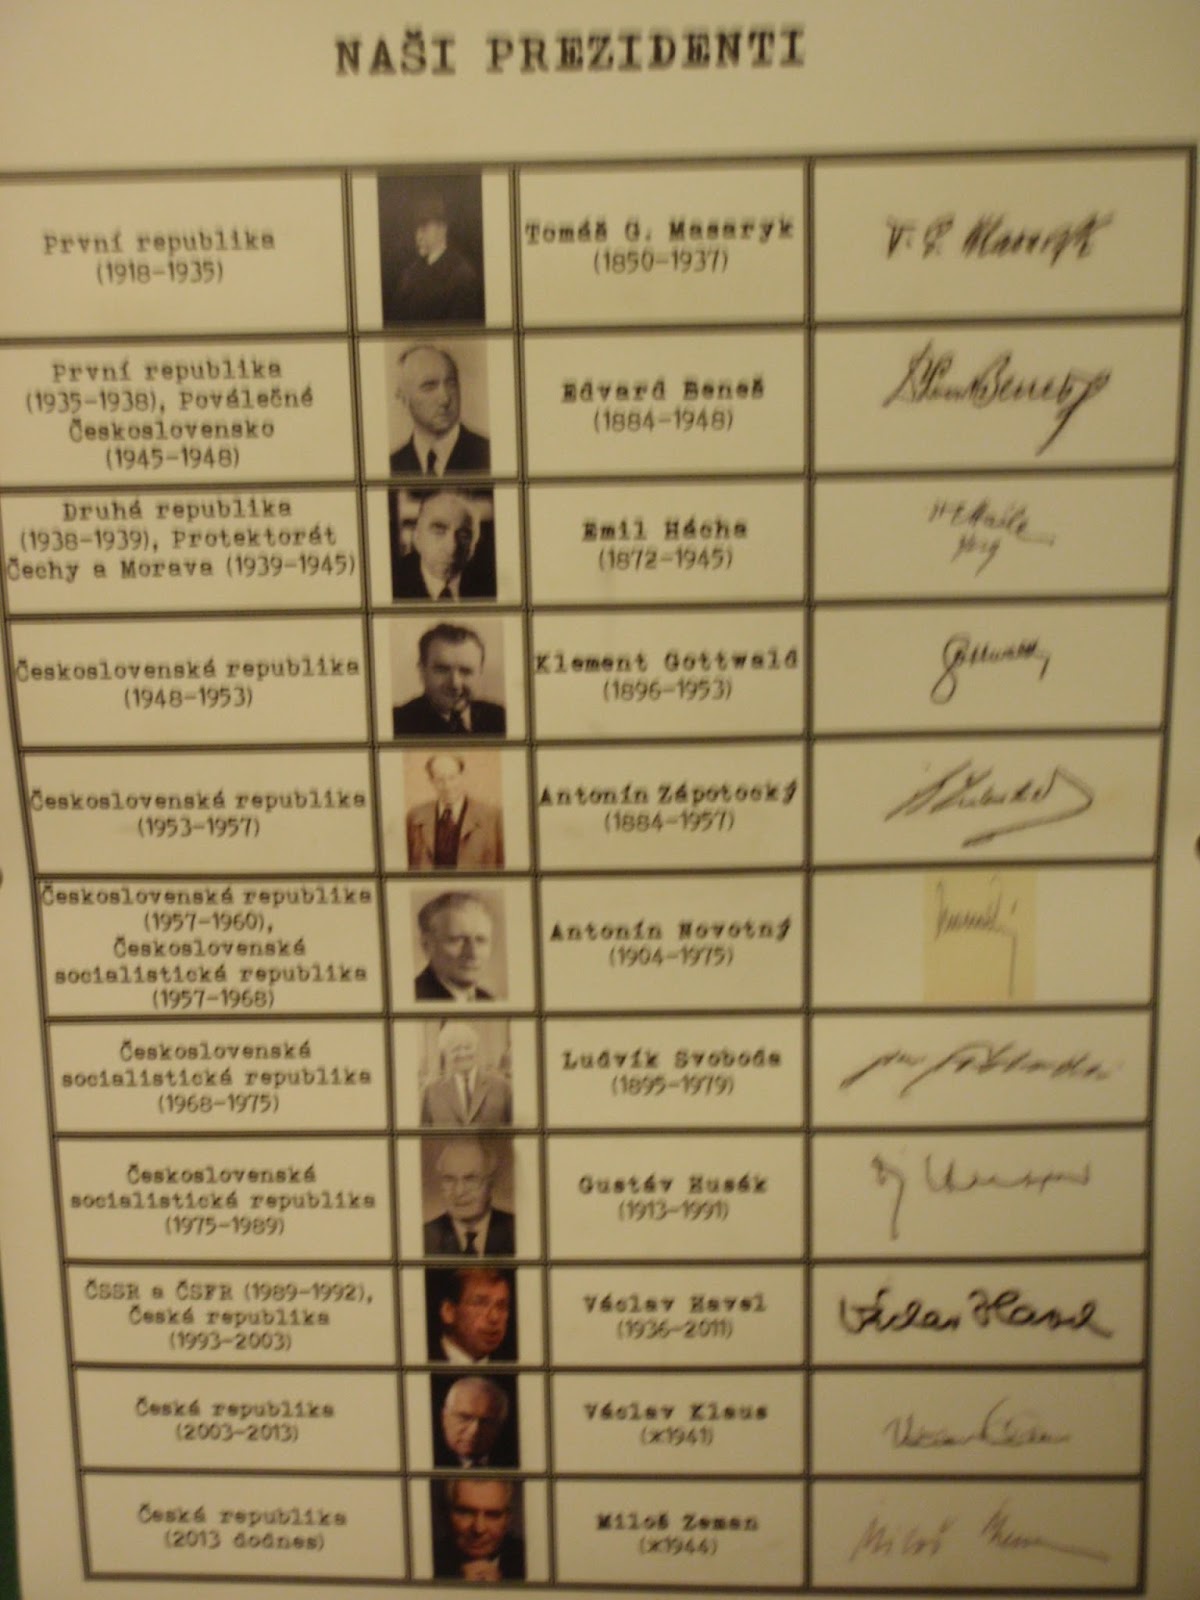 NAŠI PREZIDENTI
První republika
(1918-1935)
Tomáš G. Masaryk
(1850-1937)
První republika
(1935-1938), Poválečné
Československo
(1945-1948)
Edvard Beneš
(1884-1948)
Druhá republika
(1938-1939), Protektorát
Čechy a Morava (1939-1945)
Emil Hácha
(1872-1945)
Československá republika
(1948-1953)
Klement Gottwald
(1896-1953)
Gottwald
Československá republika
(1953-1957)
Antonín Zápotocký
(1884-1957)
Československá republika
(1957-1960),
Československá
socialistická republika
(1957-1968)
Antonín Novotný
(1904-1975)
Československá
socialistická republika
(1968-1975)
Ludvík Svoboda
(1895-1979)
Československá
socialistická republika
(1975-1989)
Gustáv Husák
(1913-1991)
ČSSR a ČSFR (1989-1992),
Česká republika
(1993-2003)
Václav Havel
(1936-2011)
Václav Havel
Česká republika
(2003-2013)
Václav Klaus
(*1941)
Česká republika
(2013 dodnes)
Miloš Zeman
(*1944)
Miloš Zeman